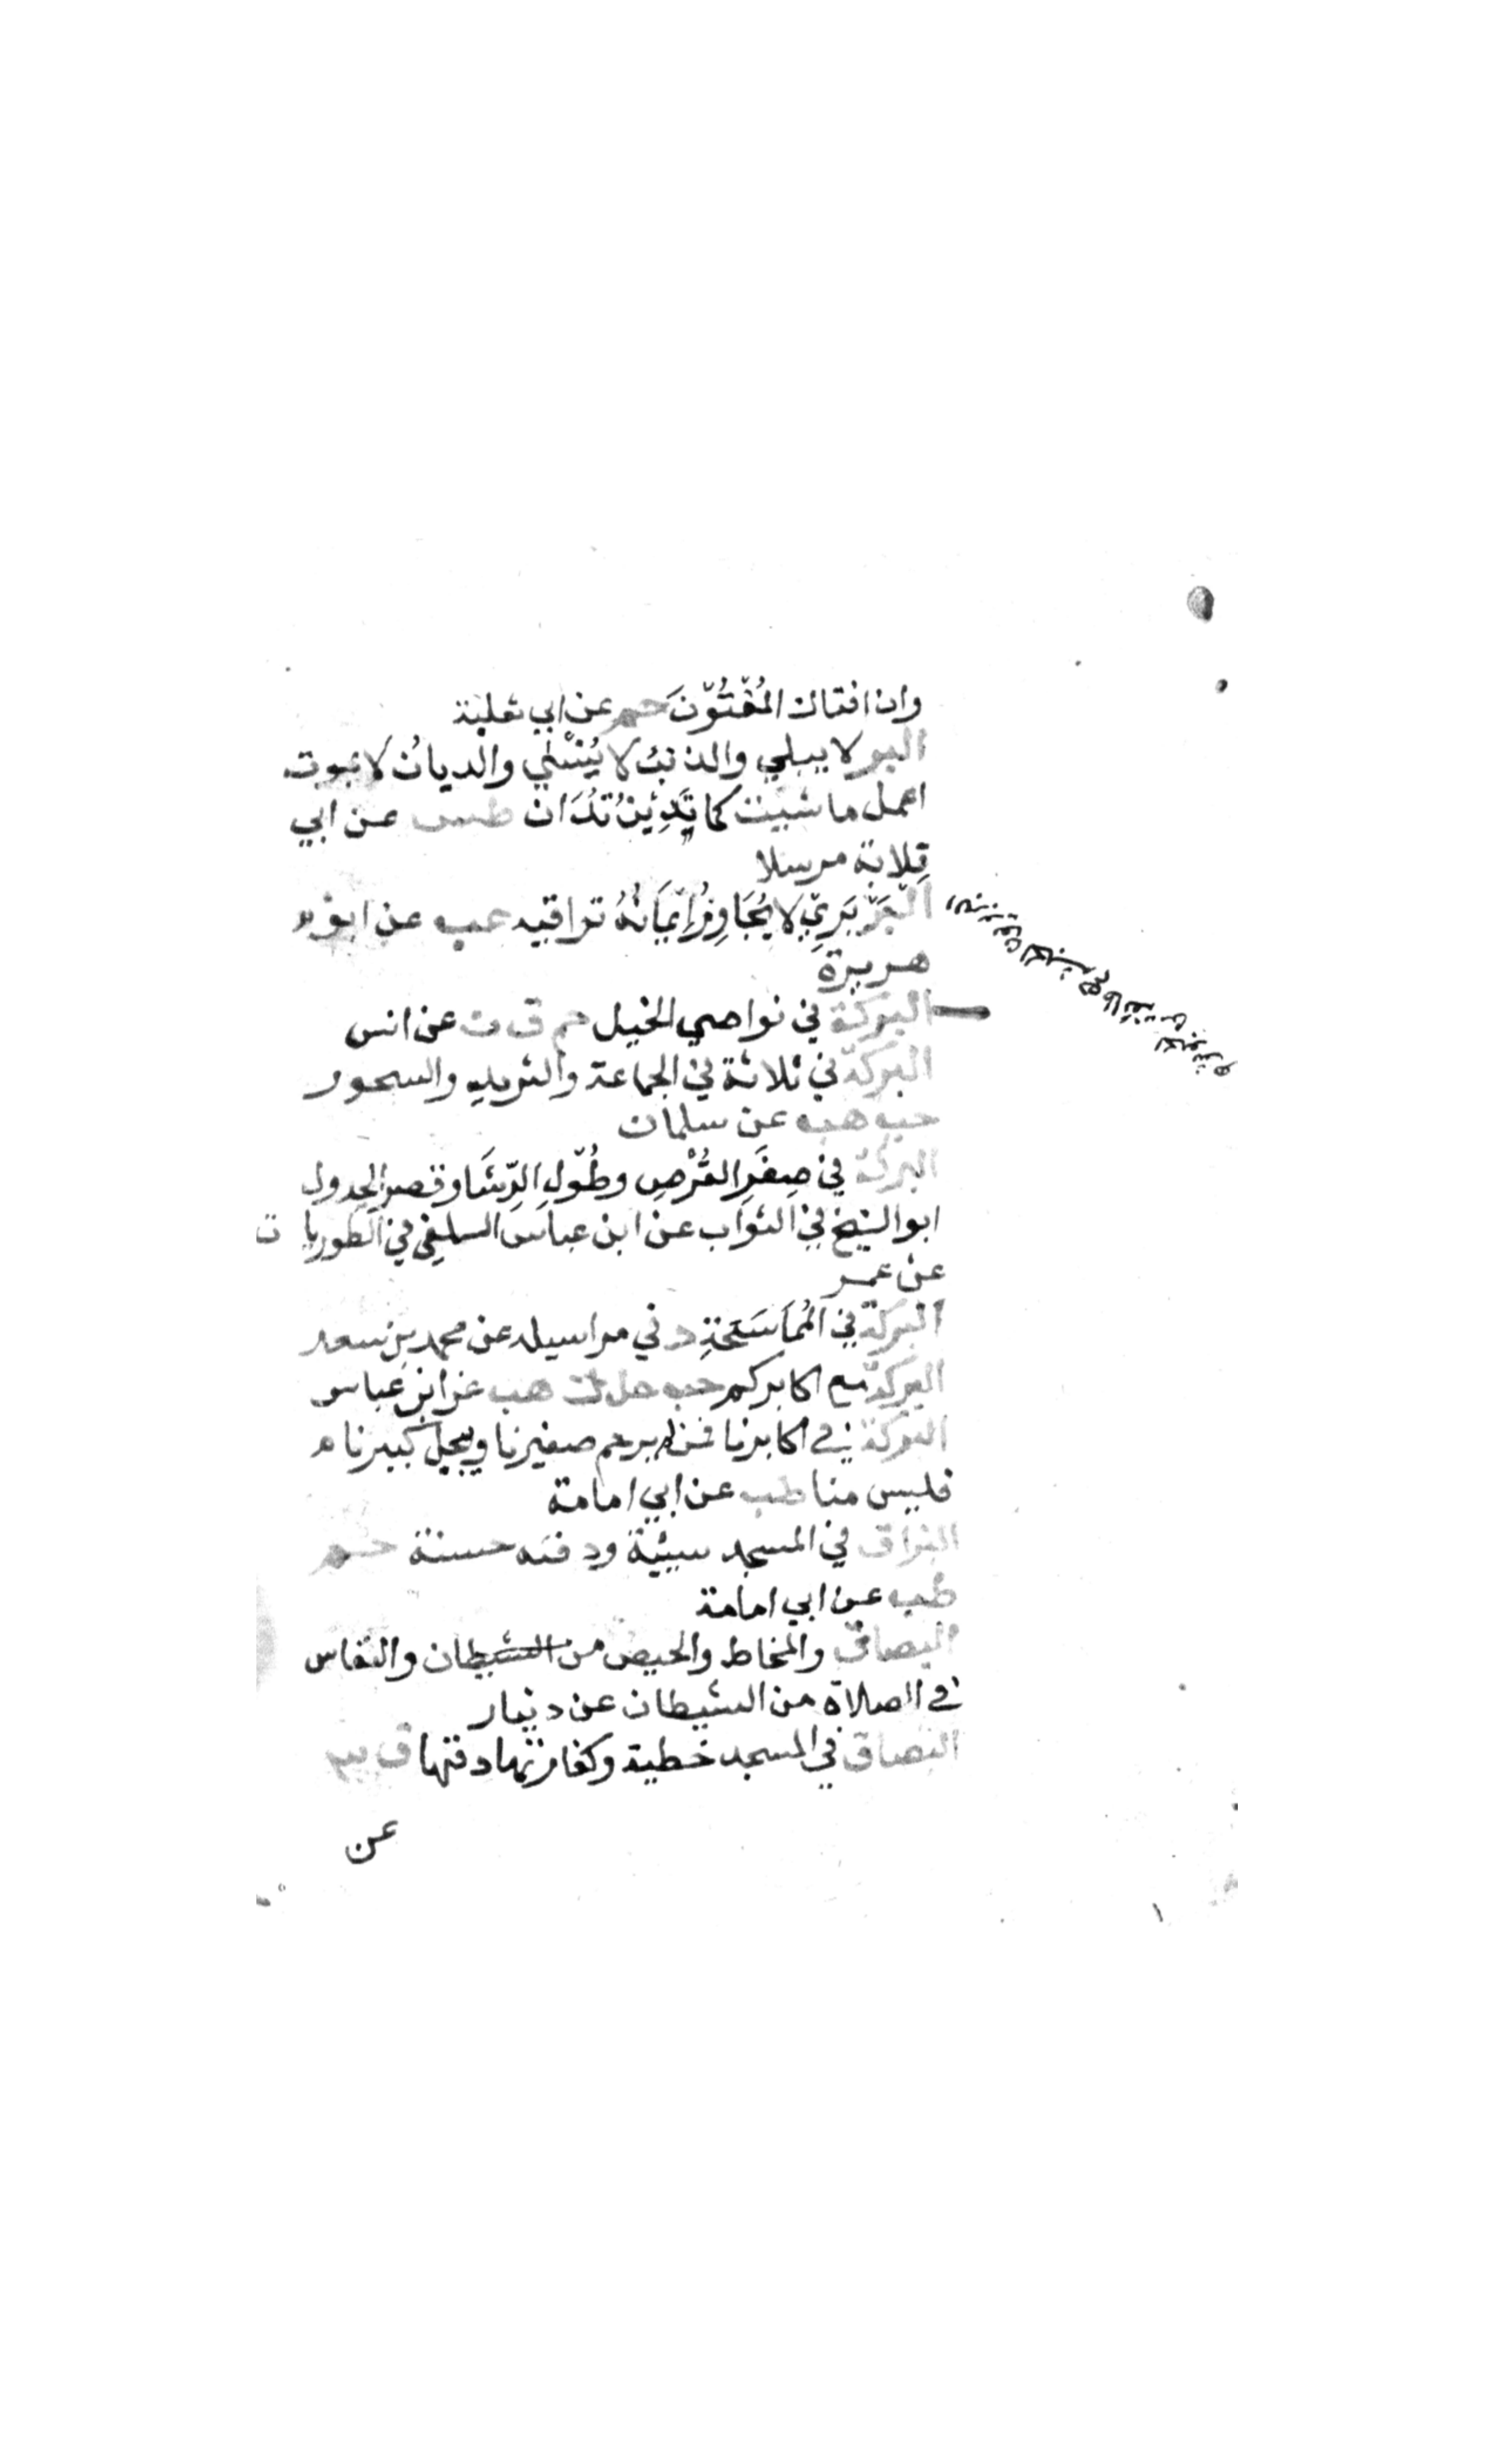 وان افتاك المُفْتُوّنَ حم عن ابي ثعلبة
البر لا يبلي والذنب لا يُنْسَي والديانُ لا يموت
اعمل ما شيت كما تَدِيْنُ تُدَان عن ابي
قِلابة مرسلا
البَرْبَرِيّ لا يُجَاوِزُ اِيْمَانُهُ تراقيه عن ابو
هريرة
البركة في نواصي الخيل حم ق ن عن انس
البركة في ثلاثة في الجماعة والثريد والسحور
طب هب عن سلمان
البركة في صِغَرِ القُرْصِ وطُوْلِ الرِّشَا وقصر الجدول
ابو الشيخ في الثواب عن ابن عباس السلفي في الطوريا ت
عن عمر
البركة في المُمَاسَحَةِ د في مراسيله عن محمد بن سعد
البركة مع اكابركم حب حل ك هب عن ابن عباس
البركة في اكابرنا فمن لم يرحم صغيرنا ويجل كبيرنا
فليس منا طب عن ابي امامة
البزاق في المسجد سيئة ودفنه حسنة حم
طب عن ابي امامة
البصاق والمخاط والحيض من الشيطان والنعاس
في الصلاة من الشيطان عن دينار
البصاق في المسجد خطية وكفارتها دفنها ق
عن